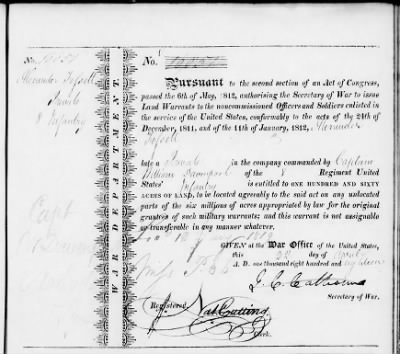 No.
Alexander
Private
8 Infantry
WAR DEPARTMENT
No.
Pursuant to the second section of an Act of Congress,
passed the 6th of May, 1812, authorising the Secretary of War to issue
Land Warrants to the noncommissioned Officers and Soldiers enlisted in
the service of the United States, conformably to the acts of the 24th
December, 1811, and of the 11th of January, 1812, Alexander
late a Private in the company commanded by Captain
William Davenport of the 8 Regiment United
States' Infantry is entitled to ONE HUNDRED AND SIXTY
ACRES OF LAND, to be located agreeably to the said act on any unlocated
parts of the six millions of acres appropriated by law for the original
grantees of such military warrants; and this warrant is not assignable
or transferable in any manner whatever.
GIVEN at the War Office of the United States,
this day of
A. D. one thousand eight hundred and eighteen
J. C. Calhoun
Secretary of War.
Registered Nat Cutting
Clerk.
Capt